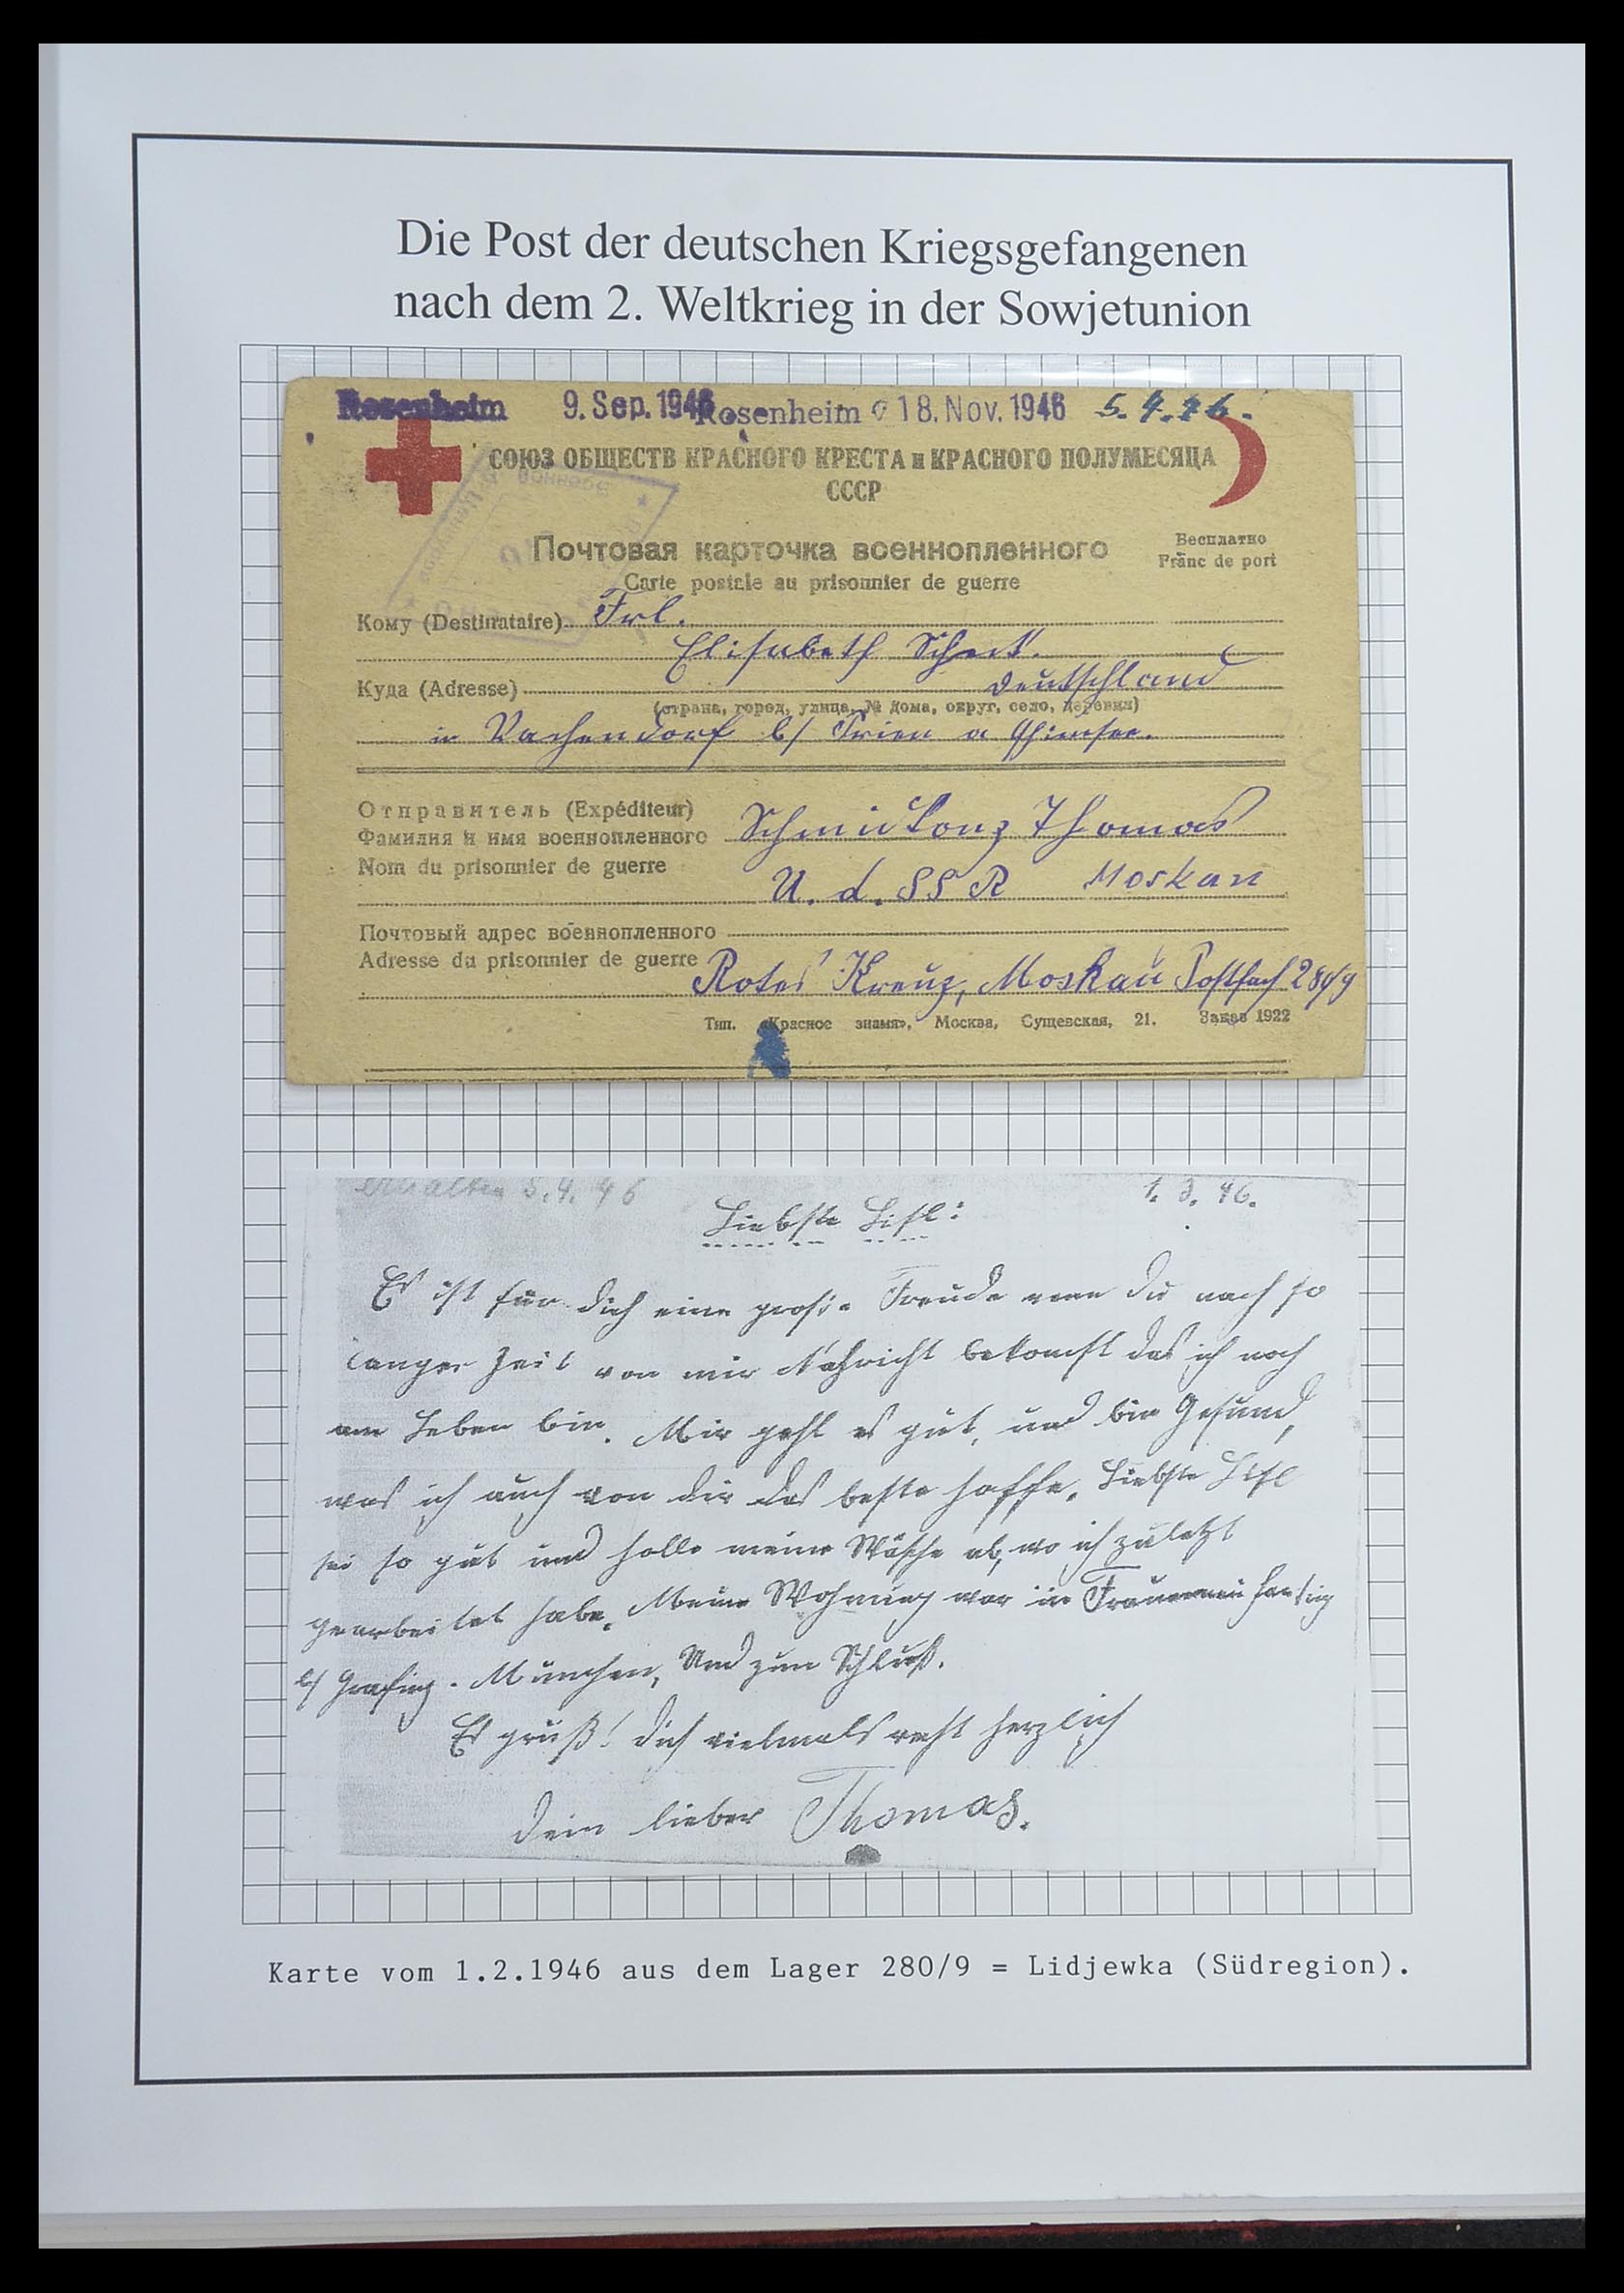 Die Post der deutschen Kriegsgefangenen
nach dem 2. Weltkrieg in der Sowjetunion
Rosenheim 9. Sep. 1946 Rosenheim 18. Nov. 1946 5.4.46.
СОЮЗ ОБЩЕСТВ КРАСНОГО КРЕСТА и КРАСНОГО ПОЛУМЕСЯЦА
СССР
Почтовая карточка военнопленного
Бесплатно
Franc de port
Carte postale au prisonnier de guerre
Кому (Destinataire) Frl.
Elisabeth
Куда (Adresse) Deutschland
(страна, город, улица, № дома, округ, село, деревня)
in Vachendorf b/ Prien a Chiemsee.
Отправитель (Expéditeur)
Фамилия и имя военнопленного Schmidkonz Thomas
Nom du prisonnier de guerre
U. d. SSR Moskau
Почтовый адрес военнопленного
Adresse du prisonnier de guerre Rotes Kreuz, Moskau Postfach 280/9
Тип. «Красное знамя», Москва, Сущевская, 21. Заказ 1922
erhalten 5.4.46 1. 3. 46.
Liebste Lisl:
Es ist für dich eine große Freude wen du nach so
langer Zeit von mir Nahricht bekomst das ich noch
am Leben bin. Mir geht es gut, und bin Gesund,
was ich auch von dir das beste hoffe. Liebste Lisl
sei so gut und holle meine Wäsche ab, wo ich zuletzt
gearbeitet habe. Meine Wohnung war in
b/ Grafing. München, Und zum Schluß.
Es grüß! dich vielmals recht herzlich
dein lieber Thomas.
Karte vom 1.2.1946 aus dem Lager 280/9 = Lidjewka (Südregion).